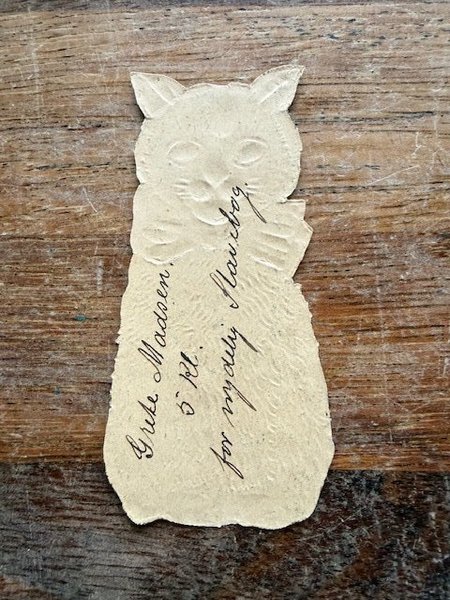 Grete Madsen.
5 Kl.
for nydelig Stavebog.